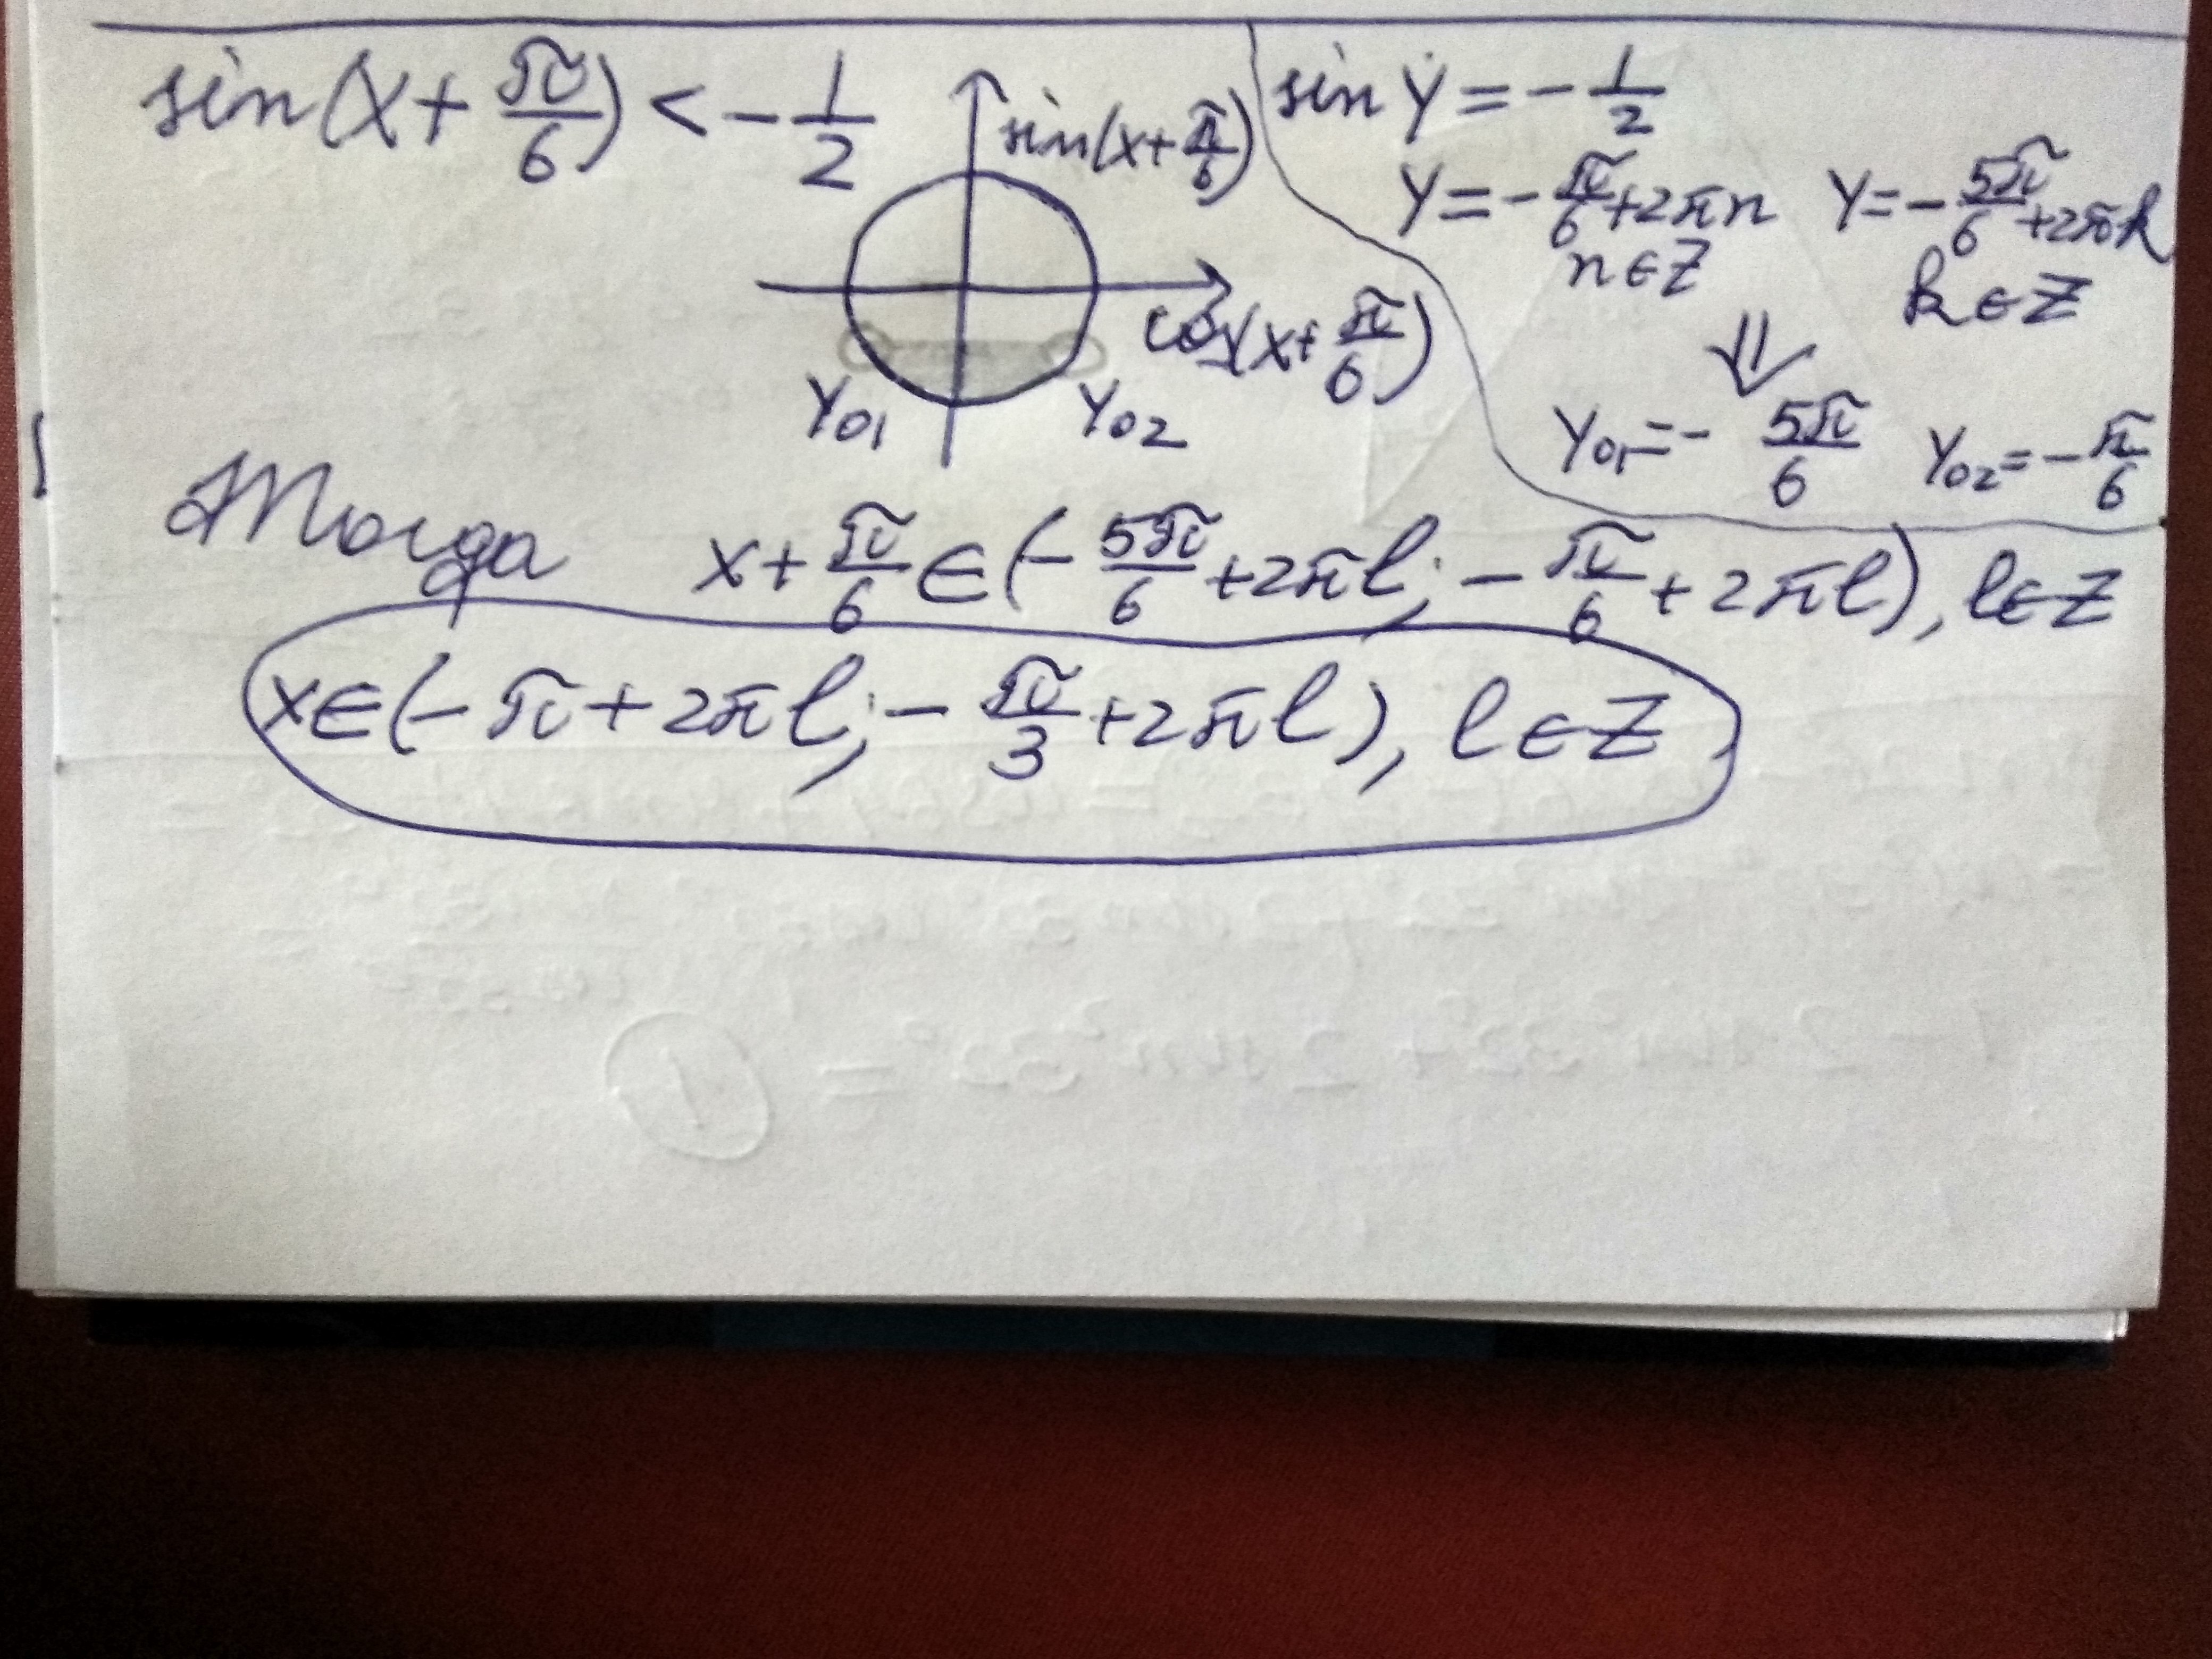 sin(x + π/6) < - 1/2
sin(x + π/6)
cos(x + π/6)
Y₀₁ Y₀₂
sin Y = - 1/2
Y = - π/6 + 2πn Y = - 5π/6 + 2πk
n ∈ Z k ∈ Z
⇓
Y₀₁ = - 5π/6 Y₀₂ = - π/6
Тогда x + π/6 ∈ (- 5π/6 + 2πl; - π/6 + 2πl), l ∈ Z
x ∈ (- π + 2πl; - π/3 + 2πl), l ∈ Z